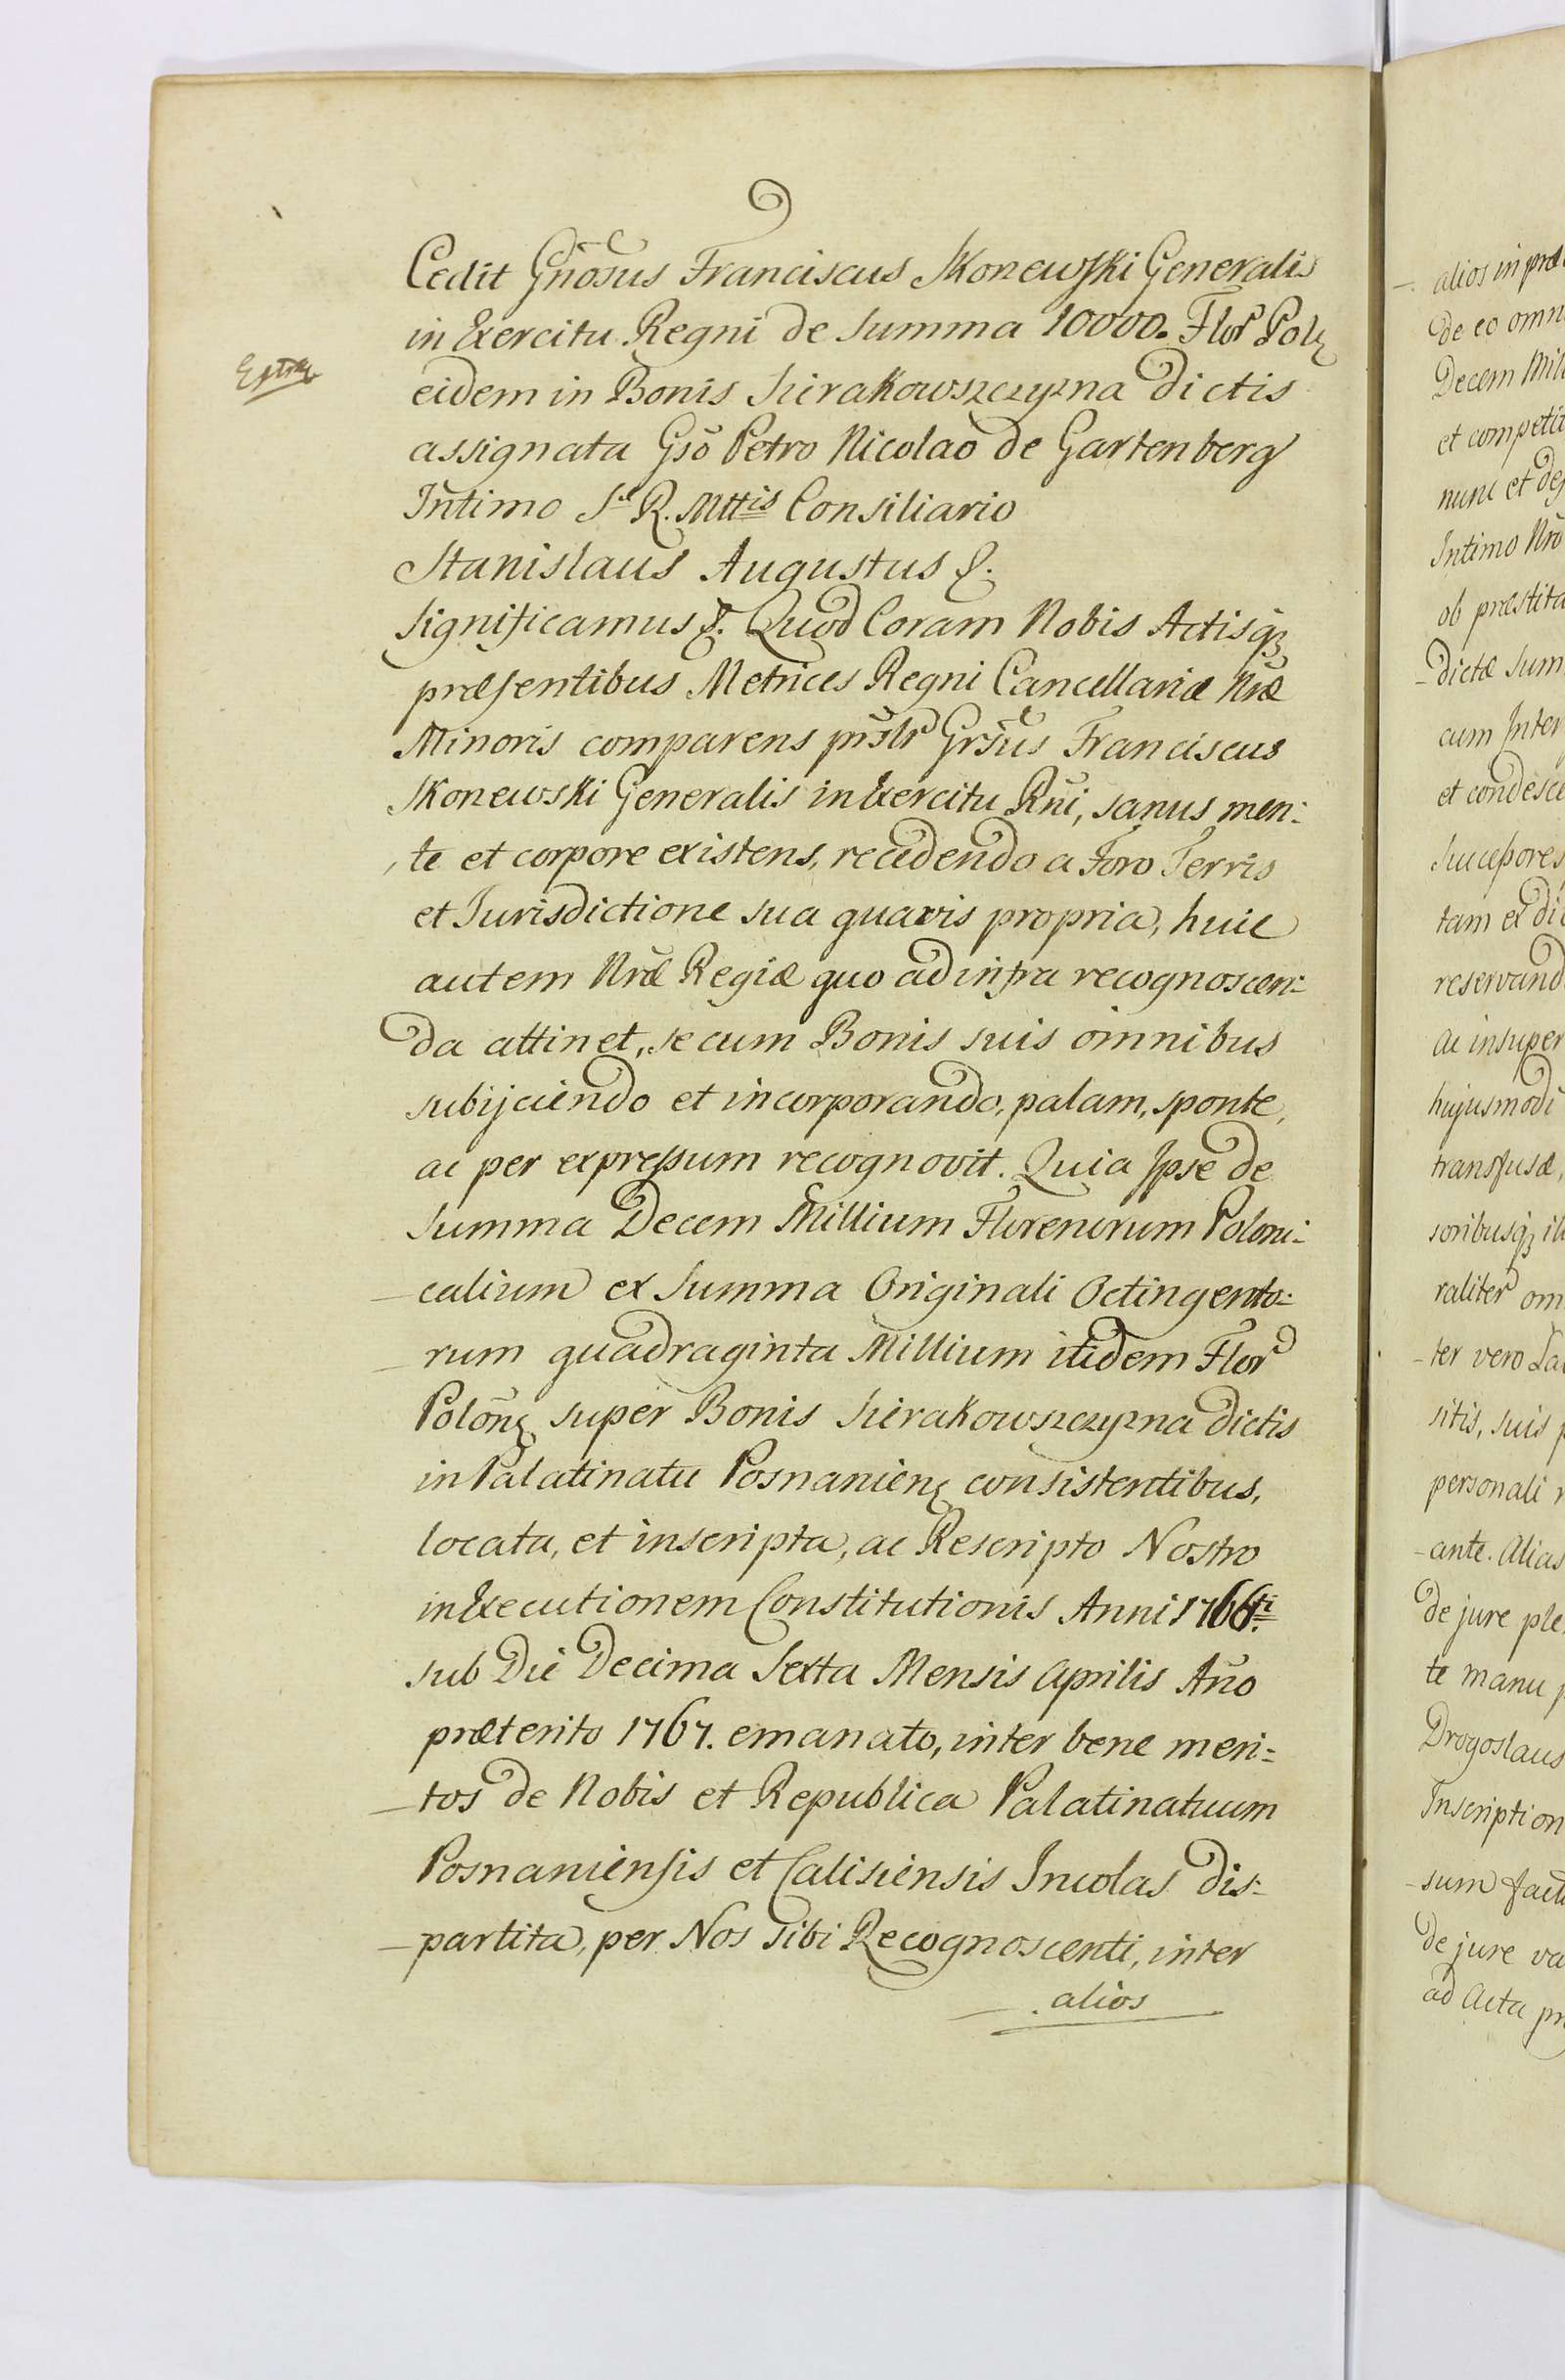 Cedit Gnõsus Franciscus Skonewski Generalis
in Exercitu Regni de Summa 10000. Flor Polz
eidem in Bonis Sierakowszczyzna dictis
assignata Gsõ Petro Nicolao de Gartenberg
Intimo S. R. Mttis Consiliario
Stanislaus Augustus &.
Significamus &. Quod Coram Nobis Actisqz
præsentibus Metrices Regni Cancellariæ Nræ
Minoris comparens psñlr Grsũs Franciscus
Skonewski Generalis in Exercitu Rñi, sanus men:
te et corpore existens, recedendo a Foro Terris
et Jurisdictione sua quavis propria, huic
autem Nræ Regiæ quo ad infra recognoscen:
da attinet, se cum Bonis suis omnibus
subijciendo et incorporando, palam, sponte,
ac per expressum recognovit. Quia Ipse de
Summa Decem Millium Florenorum Poloni:
calium ex Summa Originali Octingento:
rum quadraginta Millium itidem Flor
Polonz super Bonis Sierakowszczyzna dictis
in Palatinatu Posnanienz consistentibus,
locata, et inscripta, ac Rescripto Nostro
in Executionem Constitutionis Anni 1766ti
sub Die Decima Sexta Mensis Aprilis Año
præterito 1767. emanato, inter bene meri=
tos de Nobis et Republica Palatinatuum
Posnaniensis et Calisiensis Incolas dis:
partita, per Nos Sibi Recognoscenti, inter
alios
alios in præ
de eo omn
Decem Mill
et competit
nunc et de
Intimo Nrõ
ob præstita
dictæ Sum
cum Inter
et condesce
Successores
tam ex di
reservand
ac insuper
hujusmodi
transfusæ,
soribusqz
raliter om
ter vero La
sitis, suis p
personali
ante. Alias
de jure ple
te manu p
Drogoslaus
Inscription
sum fact
de jure va
ad Acta pr